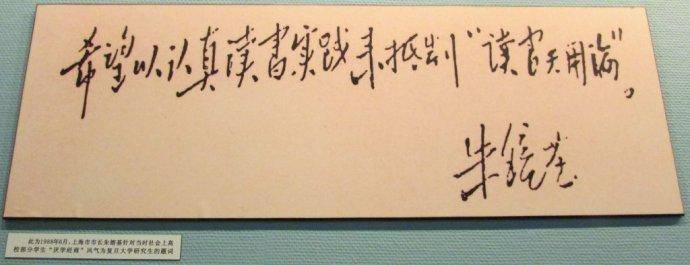 希望以认真读书实践来抵制“读书无用论”。
朱镕基
此为1988年6月,上海市市长朱镕基针对当时社会上高
校部分学生“厌学经商”风气为复旦大学研究生的题词